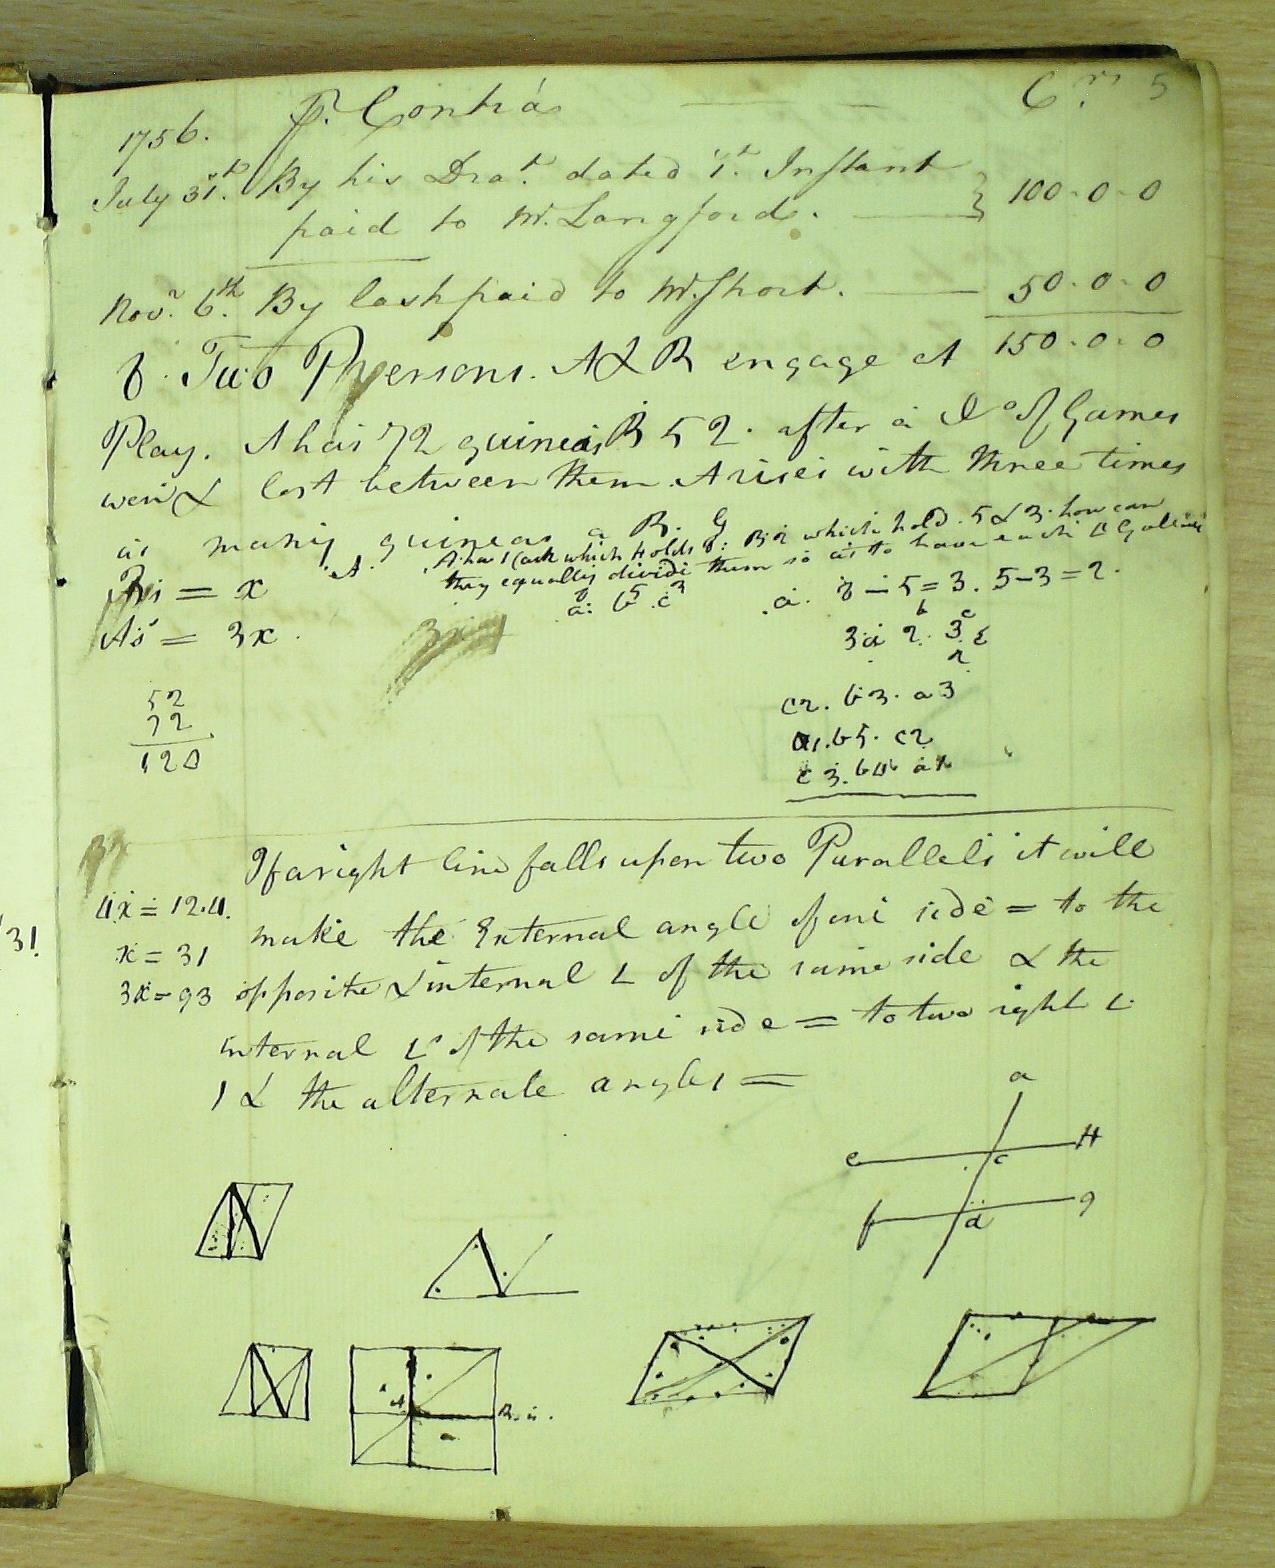 1756. P. Contrá Cr. 5
July 31st. By his Drat. dated 1st. Instant
paid to Mr. Langford. 100-0-0
Novr. 6th. By Cash paid to Mr. Short. 50-0-0
150-0-0
Two Persons. A & B engage at
Play. A has 72 guineas B 52. after a No of Games
won & lost between them A rises with three times
as many guineas as B.
A has 1 Cask which holds 8: B 2 which hold 5 & 3. how can
they equally divide them so as to have each 4 Gallons
B's = x
A's = 3x
a. b5. c3
a. 8-5=3. 5-3=2.
52
72
120
c2. b3. a3
a1. b5. c2
c3. b4. a1
If a right line falls upon two Parallels it will
4x = 124. make the External angle of one side = to the
x = 31 opposite & internal L of the same side & the
3x = 93 internal Ls of the same side = to two right L
s & the alternate angles =
a
e c H
f d g